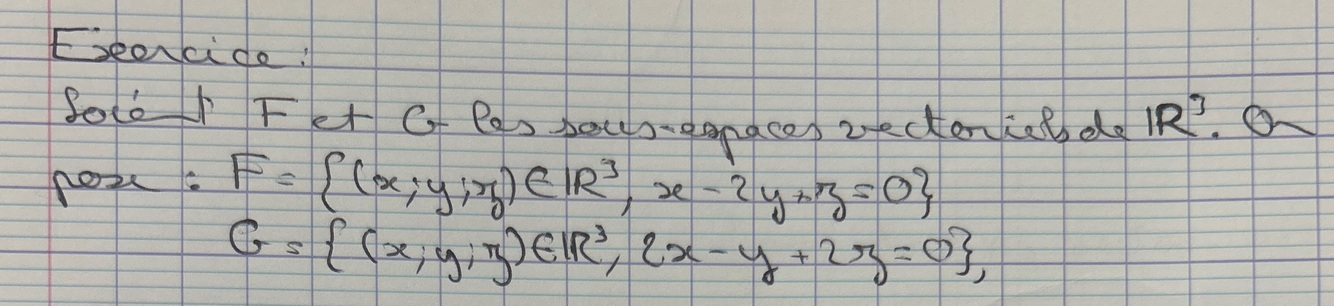 Exercice :
Soient F et G les sous-espaces vectoriels de ℝ³. On
pose : F = {(x; y; z) ∈ ℝ³, x - 2y + z = 0}
G = {(x; y; z) ∈ ℝ³, 2x - y + 2z = 0},